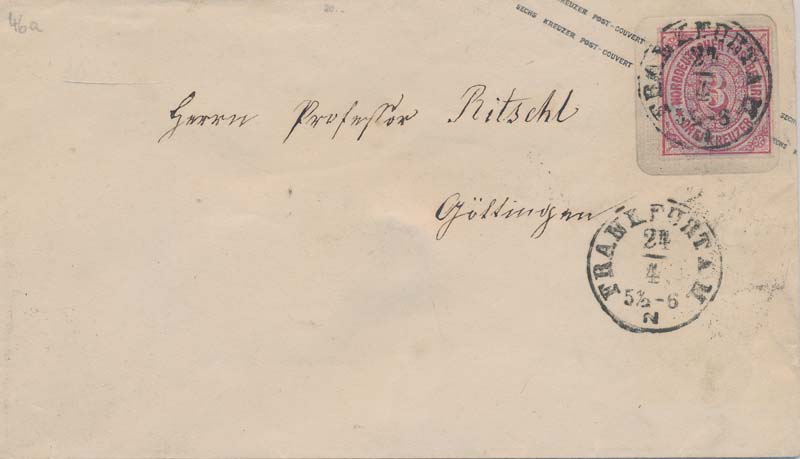 46a
20.-
SECHS KREUZER POST-COUVERT
SECHS KREUZER POST-COUVERT
NORDDEUTSCHER
3
DREI KREUZER
FRANKFURT A M
24
5½-6
Herrn Professor Ritschl
Göttingen
FRANKFURT A M
24
4
5½-6
2